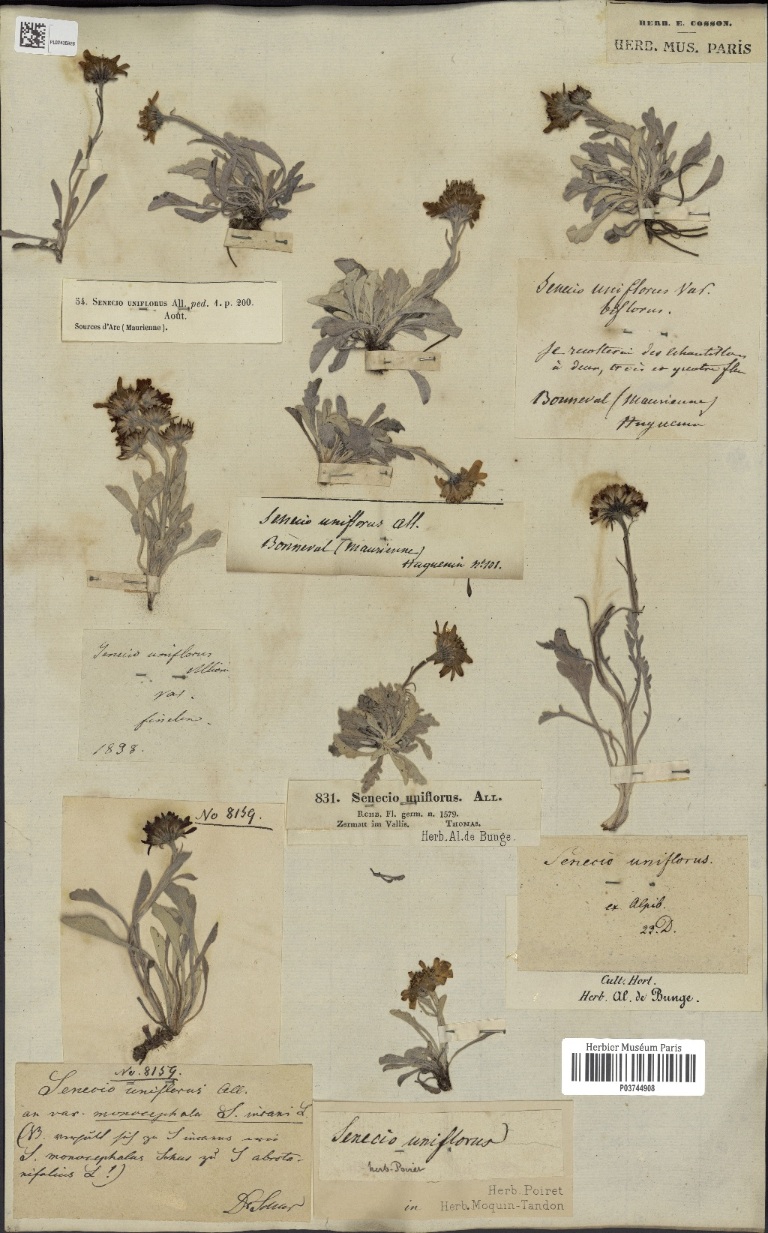 HERB. E. COSSON.
HERB. MUS. PARIS
54. SENECIO UNIFLORUS All. ped. 1. p. 200.
Août.
Sources d'Arc (Maurienne).
Senecio uniflorus Var.
biflorus.
Je récolterai des échantillons
à deux, trois et quatre
Bonneval (Maurienne)
Huguenin
Senecio uniflorus All.
Bonneval (Maurienne)
Huguenin No. 101.
Senecio uniflorus
Allioni
var.
1838.
831. Senecio uniflorus. ALL.
RCHB. Fl. germ. n. 1579.
Zermatt im Vallis. THOMAS.
Herb. Al. de Bunge.
No 8159.
Senecio uniflorus.
ex Alpib.
Cult. Hort.
Herb. Al. de Bunge.
Herbier Muséum Paris
P03744908
No. 8159.
Senecio uniflorus All.
an var. monocephala S. incani L
S. monocephalus
nifolius L!)
Senecio uniflorus
herb. Poiret
Herb. Poiret
in Herb. Moquin-Tandon